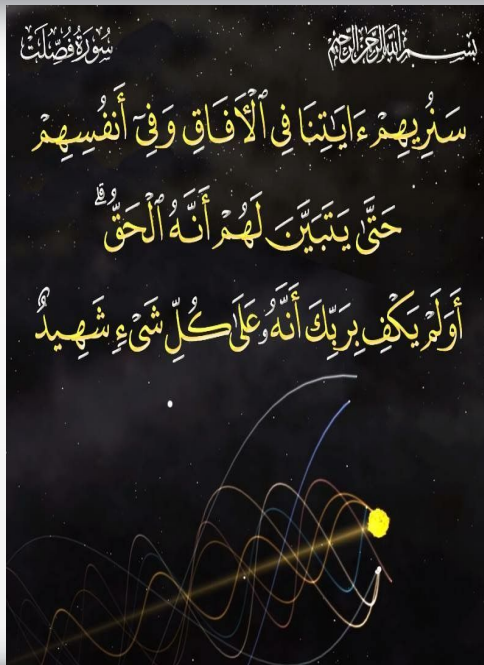 بِسْمِ اللَّهِ الرَّحْمَٰنِ الرَّحِيمِ
سُورَةُ فُصِّلَتْ
سَنُرِيهِمْ ءَايَٰتِنَا فِى ٱلْأَفَاقِ وَفِىٓ أَنفُسِهِمْ
حَتَّىٰ يَتَبَيَّنَ لَهُمْ أَنَّهُ ٱلْحَقُّ ۗ
أَوَلَمْ يَكْفِ بِرَبِّكَ أَنَّهُۥ عَلَىٰ كُلِّ شَىْءٍ شَهِيدٌ